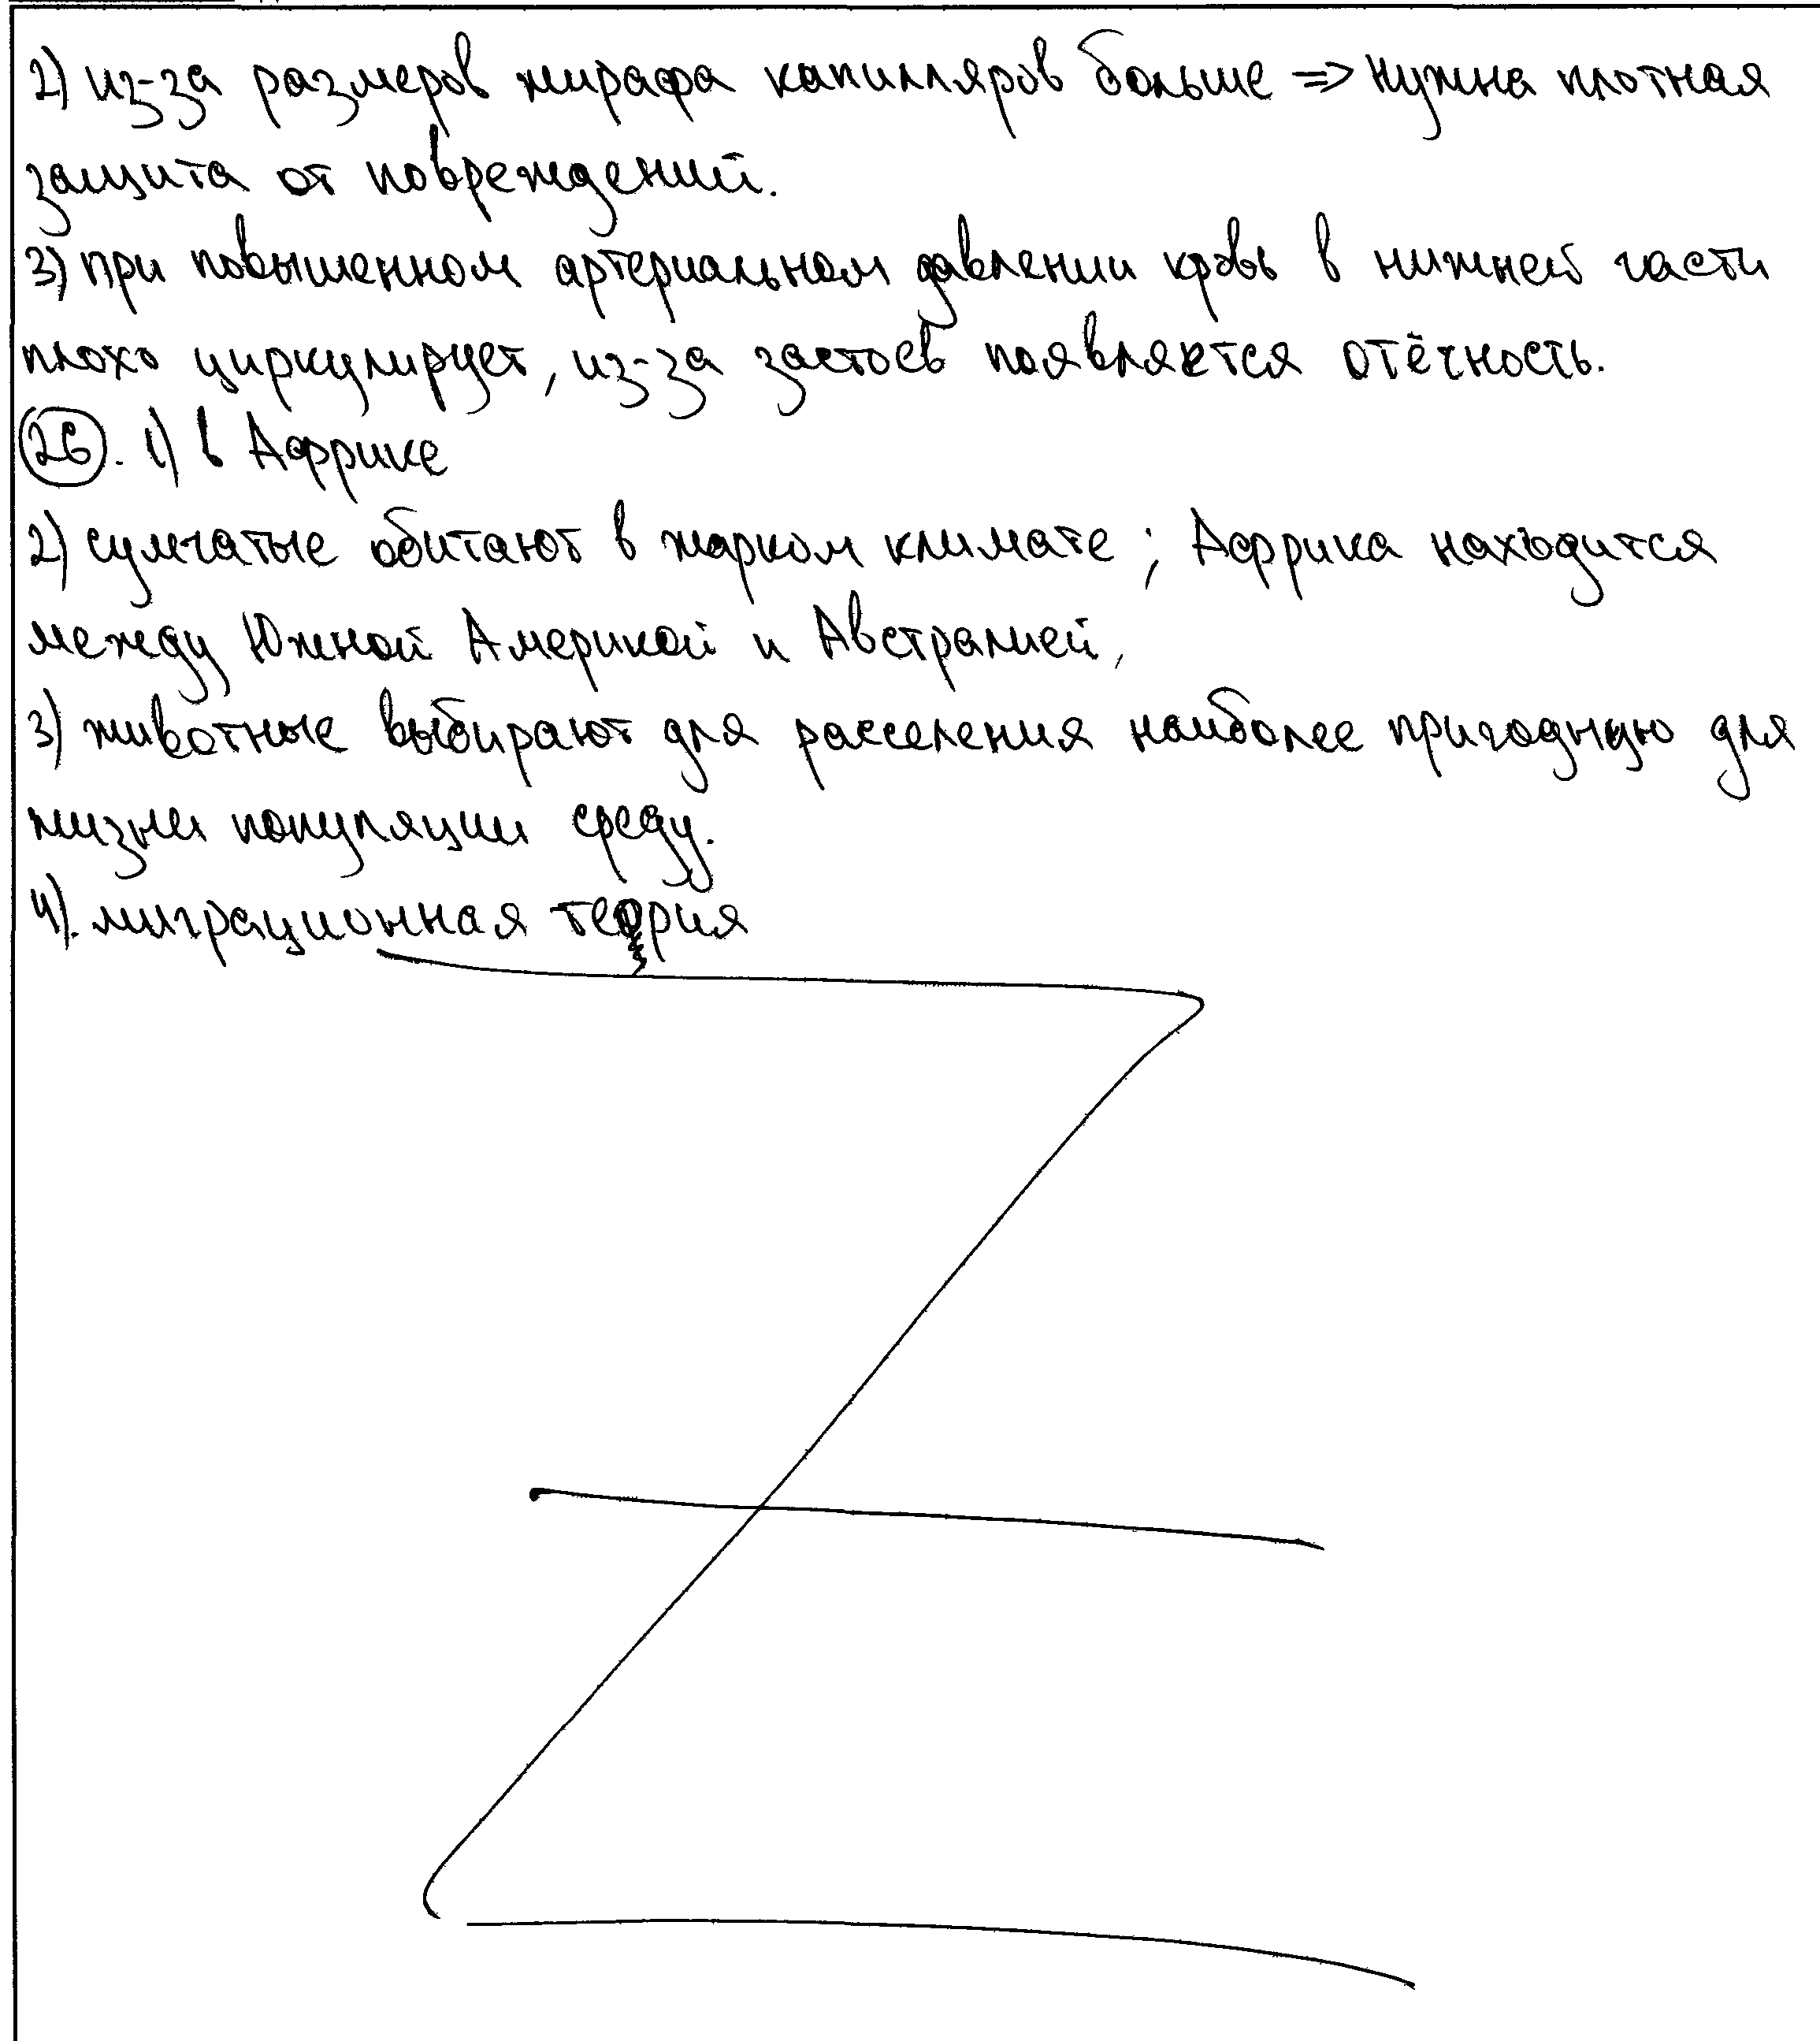 2) из-за размеров жирафа капилляров больше => нужна плотная
защита от повреждений.
3) при повышенном артериальном давлении кровь в нижней части
плохо циркулирует, из-за застоев появляется отёчность.
26. 1) в Африке
2) сумчатые обитают в жарком климате; Африка находится
между Южной Америкой и Австралией,
3) животные выбирают для расселения наиболее пригодную для
жизни популяции среду.
4). миграционная теория